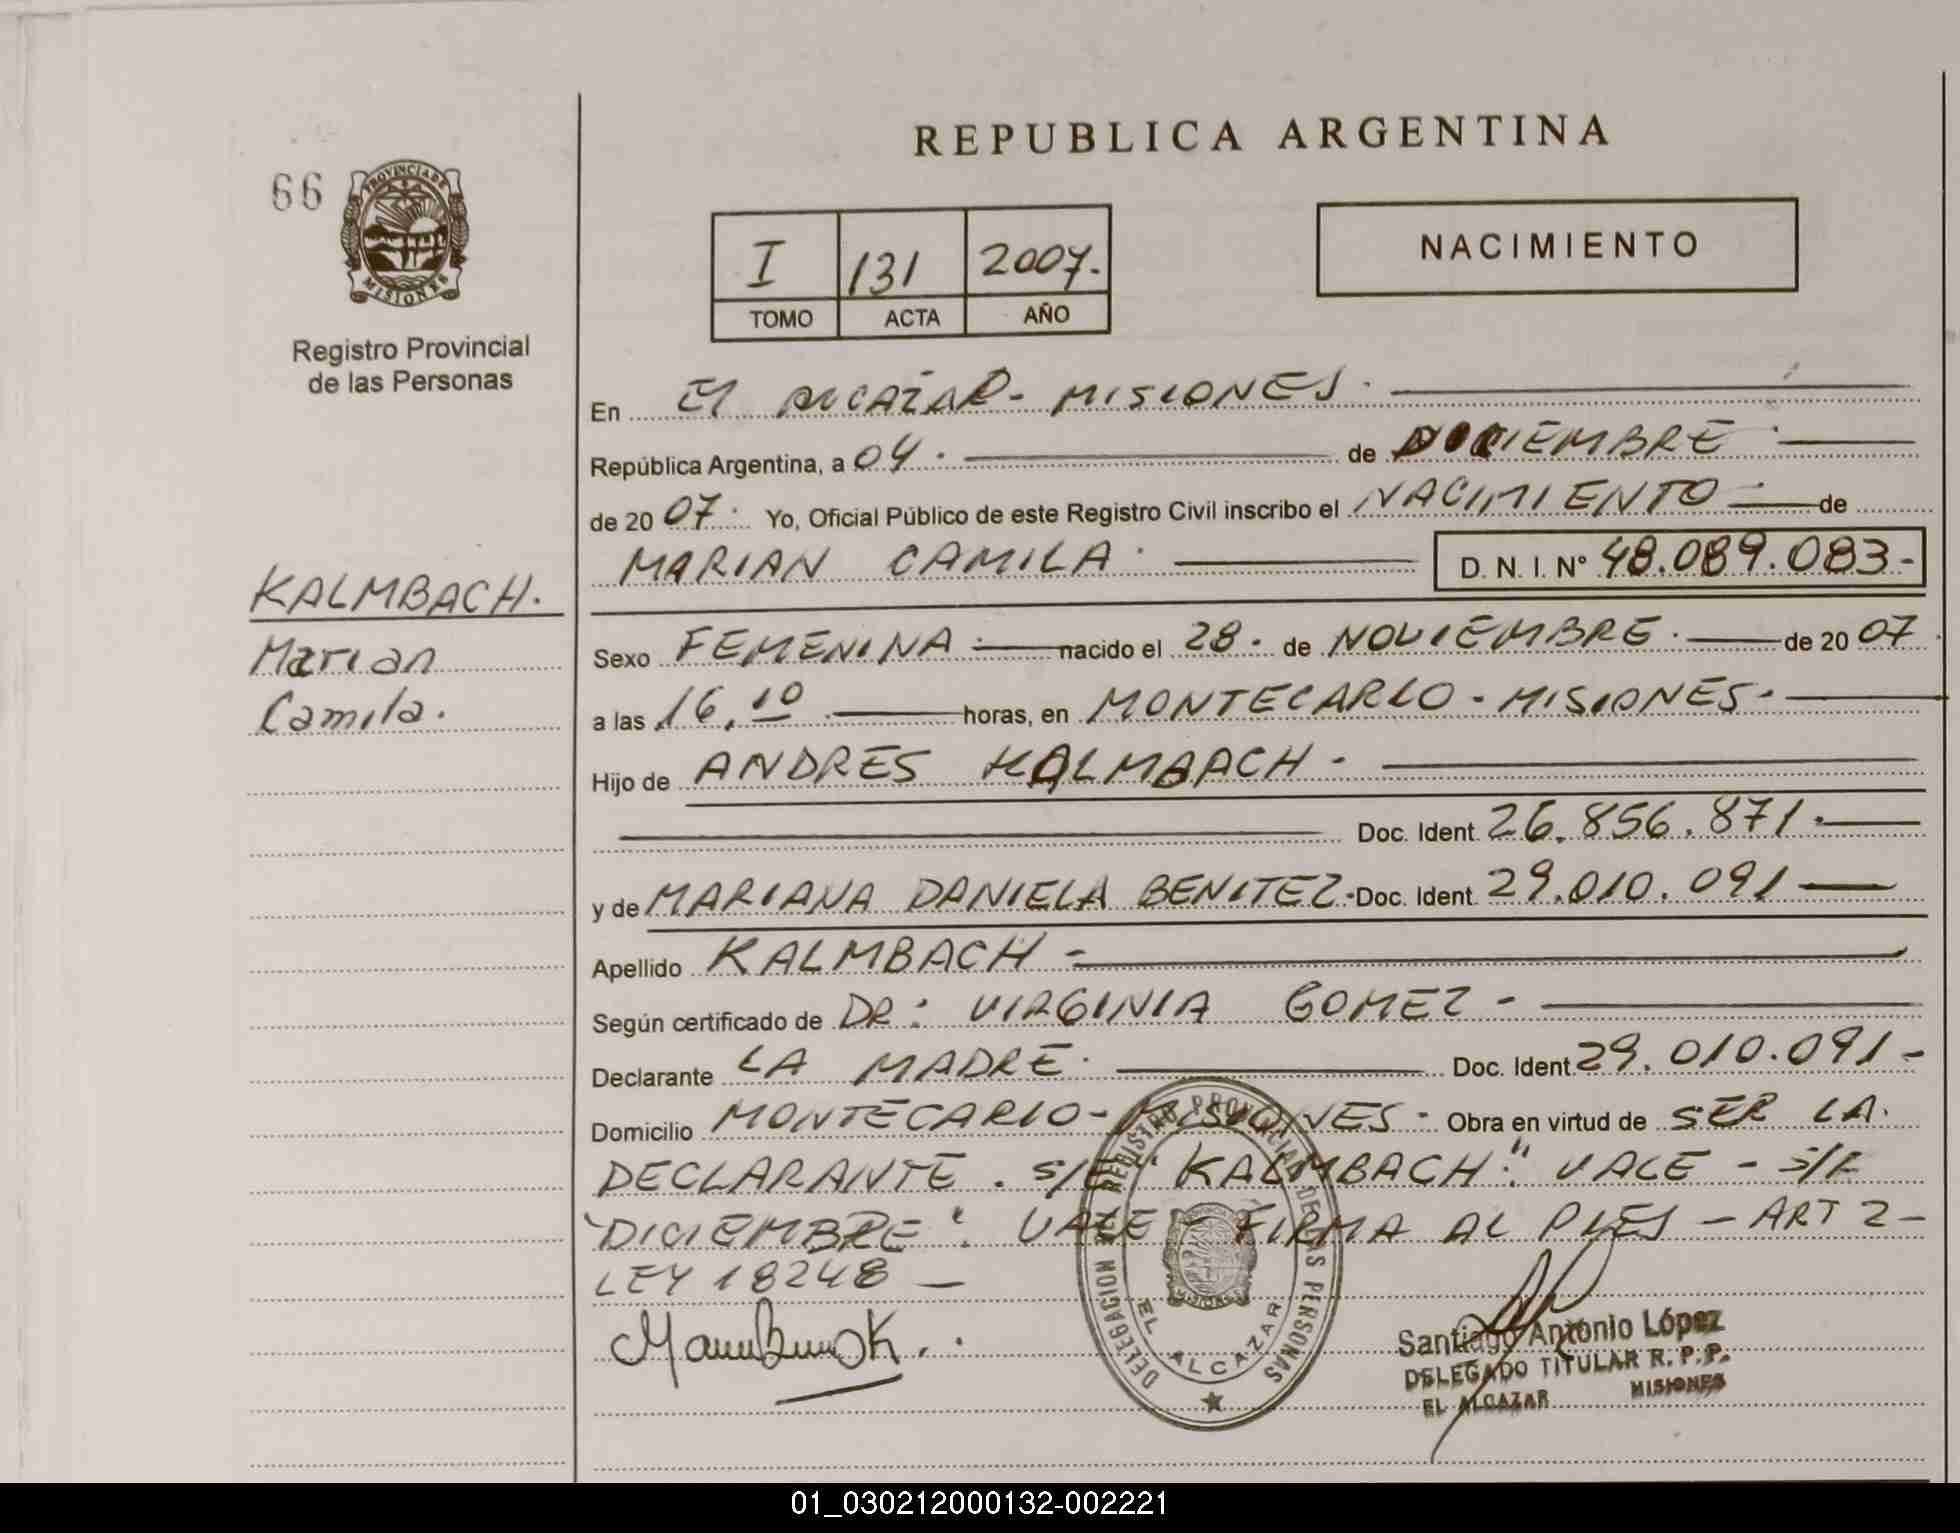 REPUBLICA ARGENTINA
66
PROVINCIA DE
MISIONES
Registro Provincial
de las Personas
I 131 2007.
TOMO ACTA AÑO
NACIMIENTO
En El ALCAZAR - MISIONES.
República Argentina, a 04. de DICIEMBRE
de 20 07. Yo, Oficial Público de este Registro Civil inscribo el NACIMIENTO de
MARIAN CAMILA. D. N. I. Nº 48.089.083-
KALMBACH.
Marian
Camila.
Sexo FEMENINA. nacido el 28. de NOVIEMBRE. de 20 07.
a las 16,10 horas, en MONTECARLO - MISIONES-
Hijo de ANDRES KALMBACH -
Doc. Ident. 26.856.871.
y de MARIANA DANIELA BENITEZ - Doc. Ident. 29.010.091
Apellido KALMBACH -
Según certificado de DR: VIRGINIA GOMEZ -
Declarante LA MADRE. Doc. Ident. 29.010.091-
Domicilio MONTECARLO - MISIONES - Obra en virtud de SER LA
DECLARANTE. S/E "KALMBACH". VALE - S/E
"DICIEMBRE". VALE - FIRMA AL PIES - ART 2 -
LEY 18248 -
DELEGACION DEL REGISTRO PROVINCIAL DE LAS PERSONAS
PROVINCIA DE
MISIONES
EL ALCAZAR
Santiago Antonio López
DELEGADO TITULAR R. P. P.
EL ALCAZAR MISIONES
01_030212000132-002221